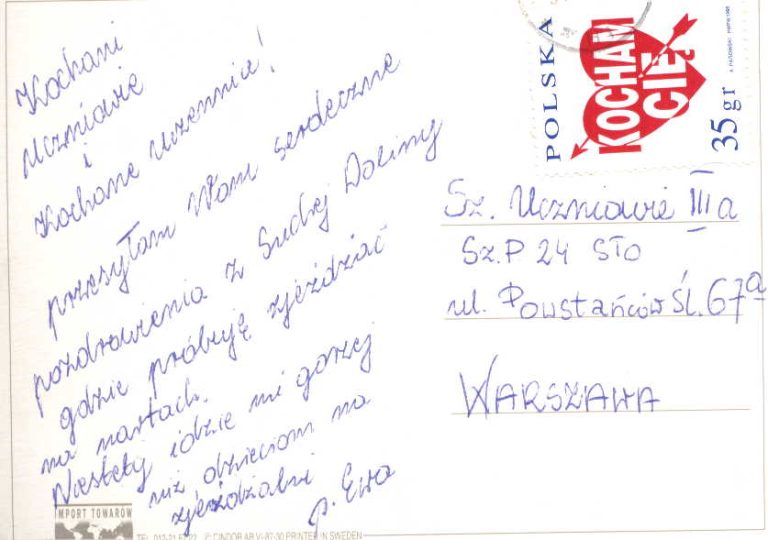 Kochani
Uczniowie
i
Kochane Uczennice!
przesyłam Wam serdeczne
pozdrowienia z Suchej Doliny
gdzie próbuję zjeżdżać
na nartach.
Niestety idzie mi gorzej
niż dzieciom na
zjeżdżalni
p. Ewa
POLSKA
KOCHAM
CIĘ
35 gr
Sz. Uczniowie III a
Sz.P 24 STO
ul. Powstańców Śl. 67a
WARSZAWA
IMPORT TOWARÓW
CINDOR AB VI-87-30 PRINTED IN SWEDEN